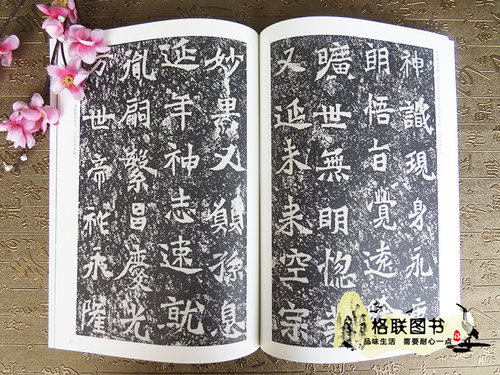 神識現身永
朗悟旨覺遠
曠世無明惚
又延未来空宗
妙果又願孫息
延年神志速就
胤嗣繁昌慶光
世帝祚永隆
格联图书
品味生活 需要耐心一点